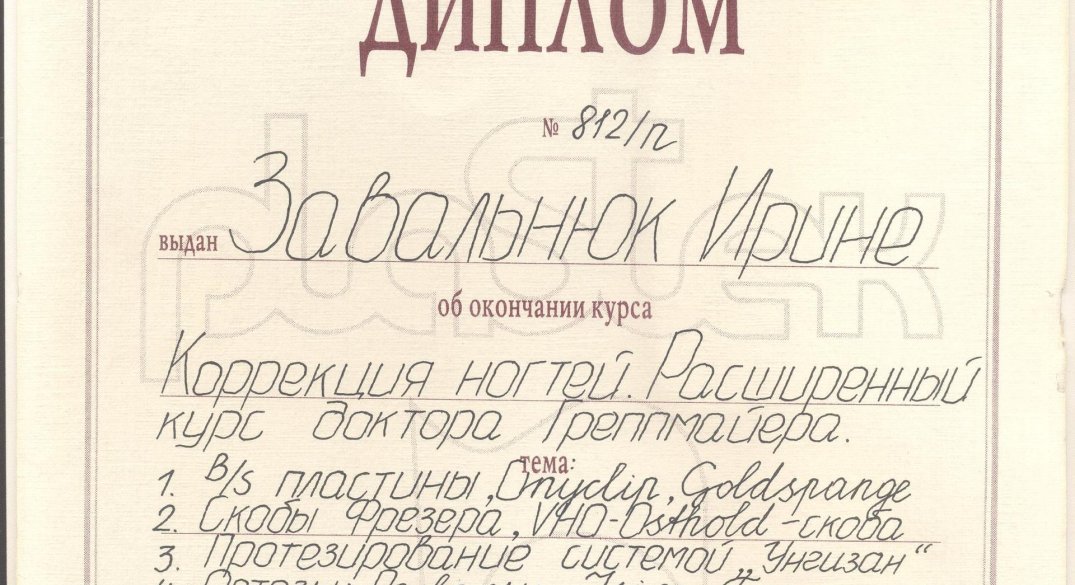 ДИПЛОМ
№ 812/п
выдан Завальнюк Ирине
об окончании курса
Коррекция ногтей. Расширенный
курс доктора Греппмайера.
тема:
1. B/S пластины, Onyclip, Goldspange
2. Скобы Фрезера, VHO-Osthold-скоба
3. Протезирование системой „Унгизан“
plastek